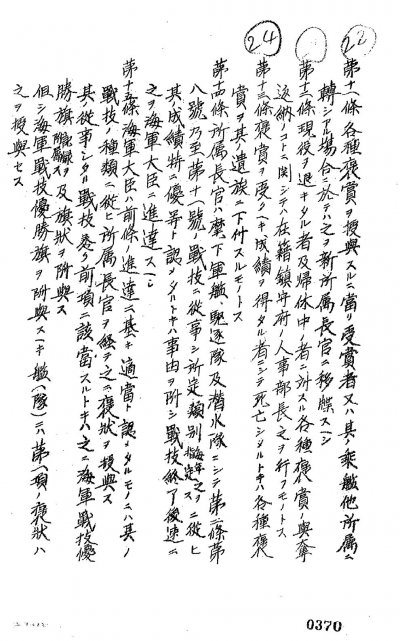 22
24
第十一條各種褒賞ヲ授與スルニ當リ受賞者又ハ其ノ乘艦他所屬ニ
轉ジタル場合ニ於テハ之ヲ新所屬長官ニ移牒スベシ
第十二條現役ヲ退キタル者及歸休中ノ者ニ對スル各種褒賞ノ與奪
返納ノコトニ關シテハ在籍鎭守府ノ人事部長之ヲ行フモノトス
第十三條褒賞ヲ受クベキ成績ヲ得タル者ニシテ死亡シタルトキハ各種褒
賞ヲ其ノ遺族ニ下付スルモノトス
第十四條所屬長官ハ麾下軍艦、驅逐隊及潜水隊ニシテ第二條第
八號乃至第十一號ノ戰技ニ從事シ所定類別(每年之ヲ定ム)ニ從ヒ
其成績特ニ優等ト認メタルトキハ事由ヲ附シ戰技終了後速ニ
之ヲ海軍大臣ニ進達スベシ
第十五條海軍大臣ハ前條ノ進達ニ基キ適當ト認メタルモノニハ其ノ
戰技ノ種類ニ從ヒ所屬長官ヲ經テ之ニ褒狀ヲ授與ス
其ノ從事シタル戰技悉ク前項ニ該當スルトキハ之ニ海軍戰技優
勝旗 及旗狀ヲ附與ス
但シ海軍戰技優勝旗ヲ附與スベキ艦(隊)ニハ第一項ノ褒狀ハ
之ヲ授與セス
0370